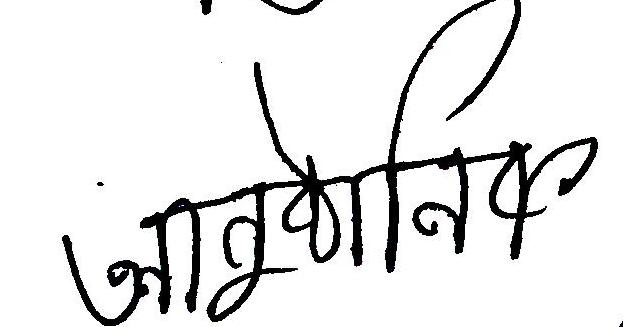 আনুষ্ঠানিক